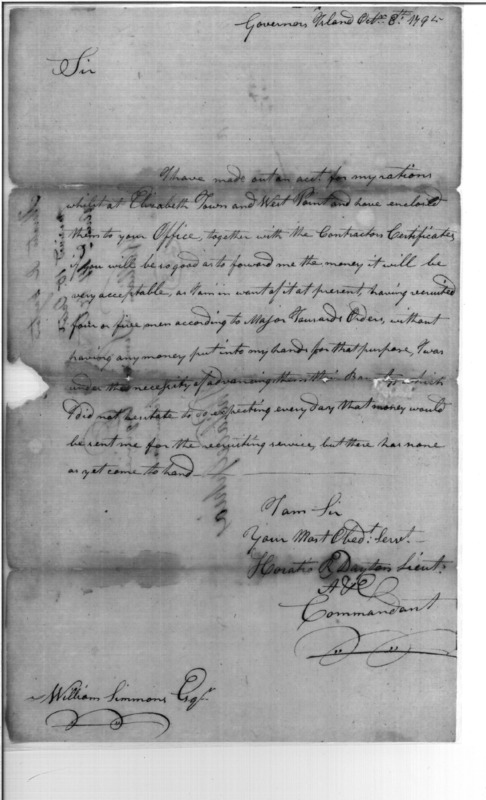 Governors Island Octr. 8th. 179
Sir
I have made out an acct. for my rations
whilst at Elizabeth Town and West Point and have enclosed
them to your Office, together with the Contractors Certificates,
if you will be so good as to forward me the money it will be
very acceptable, as I am in want of it at present, having recruited
four or five men according to Major Orders, without
having any money put into my hands for that purpose, I was
under the necessity of advancing them their Bounty which
I did not hesitate to do expecting every day that money would
be sent me for the recruiting service, but there has none
as yet come to hand
I am Sir
Your Most Obedt. Servt.
Horatio R Dayton Lieut.
A&E
Commandant
William Simmons Esqr.